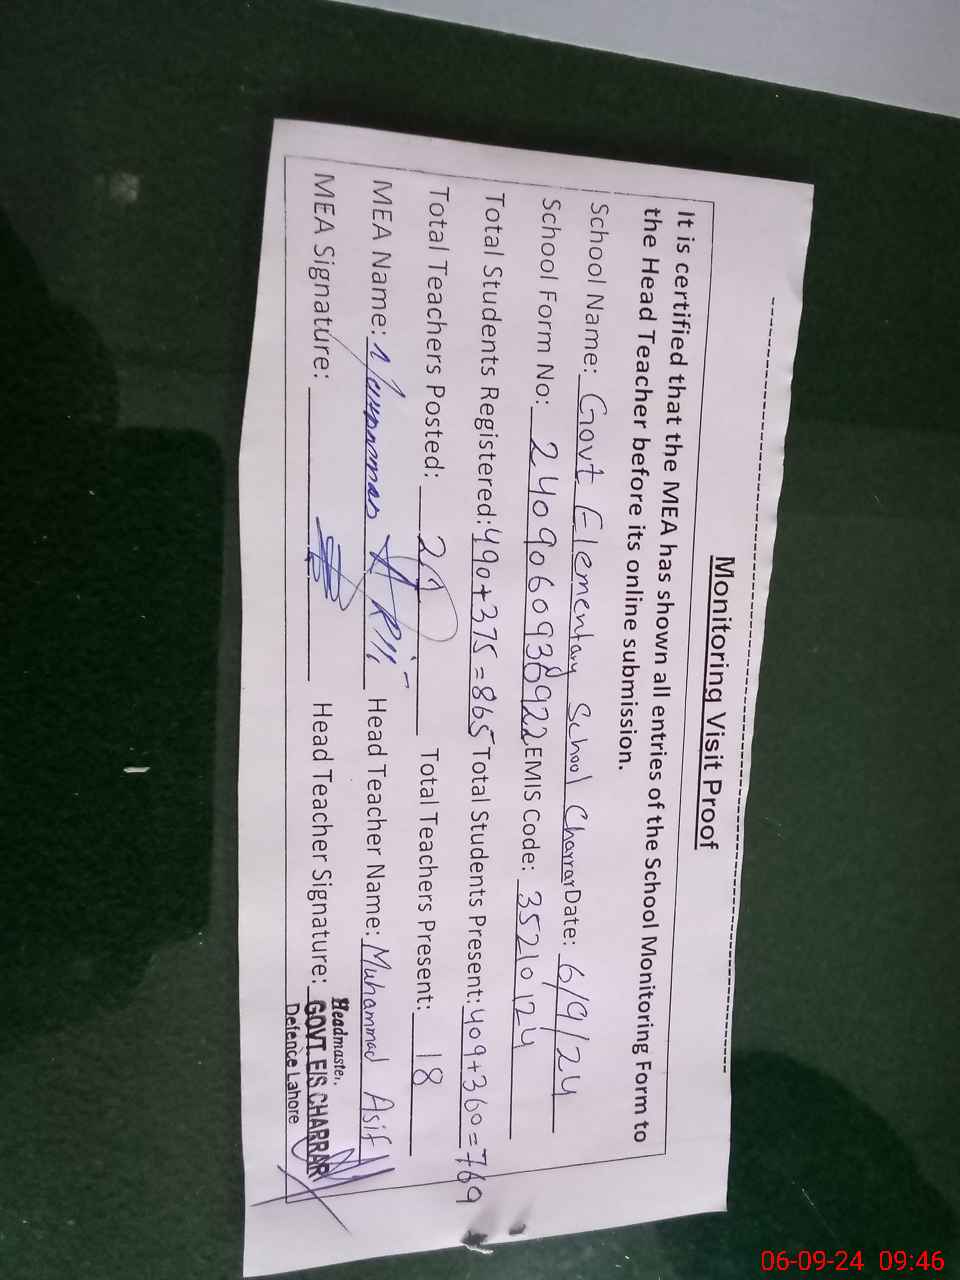 Monitoring Visit Proof
It is certified that the MEA has shown all entries of the School Monitoring Form to
the Head Teacher before its online submission.
School Name: Govt Elementary School Charrar Date: 6/9/24
School Form No: EMIS Code: 35210124
Total Students Registered: 490+375=865 Total Students Present: 409+360=769
Total Teachers Posted: Total Teachers Present: 18
MEA Name: Head Teacher Name: Muhammad Asif
MEA Signature: Head Teacher Signature:
Headmaster,
GOVT. E/S CHARRAR
Defence Lahore
06-09-24 09:46